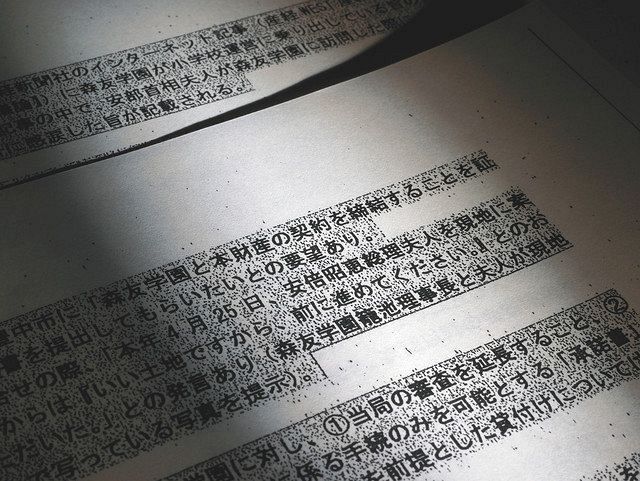 新聞社のインターネット記事（産経
に森友学園が小学校運営に乗り出している
記事の中で、安倍首相夫人が森友学園に訪問した際に
した旨が記載される。
豊中市に「森友学園と本財産の契約を締結することを証
書を提出してもらいたいとの要望あり。
せの際、「本年4月25日、安倍昭恵総理夫人を現地に案
からは『いい土地ですから、前に進めてください。』とのお
たいた。」との発言あり（森友学園籠池理事長と夫人が現地
で写っている写真を提示）。
学園に対し、①当局の審査を延長すること、②
係る手続のみを可能とする「承諾書
を前提とした貸付けについて